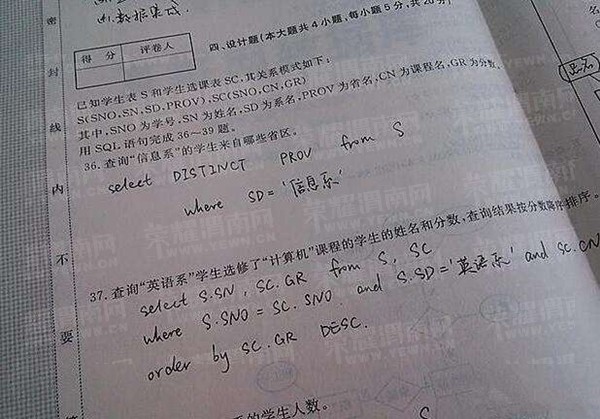 由数据集成.
密
封
线
内
不
要
得 分 评卷人
四、设计题(本大题共4小题,每小题5分,共20分)
已知学生表S和学生选课表SC,其关系模式如下:
S(SNO,SN,SD,PROV),SC(SNO,CN,GR)
其中,SNO为学号,SN为姓名,SD为系名,PROV为省名,CN为课程名,GR为分数,
用SQL语句完成36~39题。
36.查询“信息系”的学生来自哪些省区。
select DISTINCT PROV from S
where SD='信息系'
37.查询“英语系”学生选修了“计算机”课程的学生的姓名和分数,查询结果按分数降序排序。
select S.SN, SC.GR from S, SC
where S.SNO = SC.SNO and S.SD='英语系' and SC.CN
order by SC.GR DESC.
的学生人数。
S